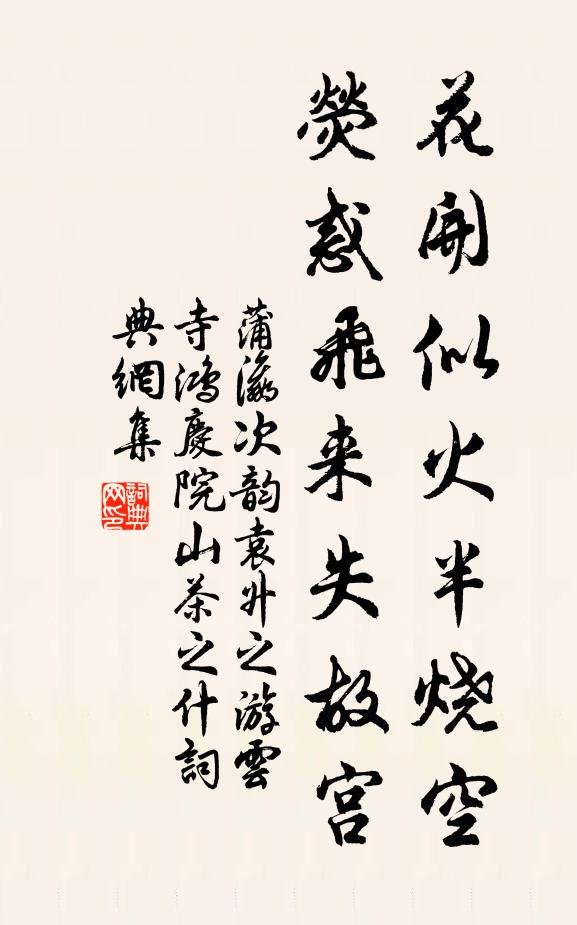 花開似火半烧空
熒惑飛来失故宫
蒲瀛次韵袁升之游雲
寺鴻慶院山茶之什詞
典網集
詞典
网印